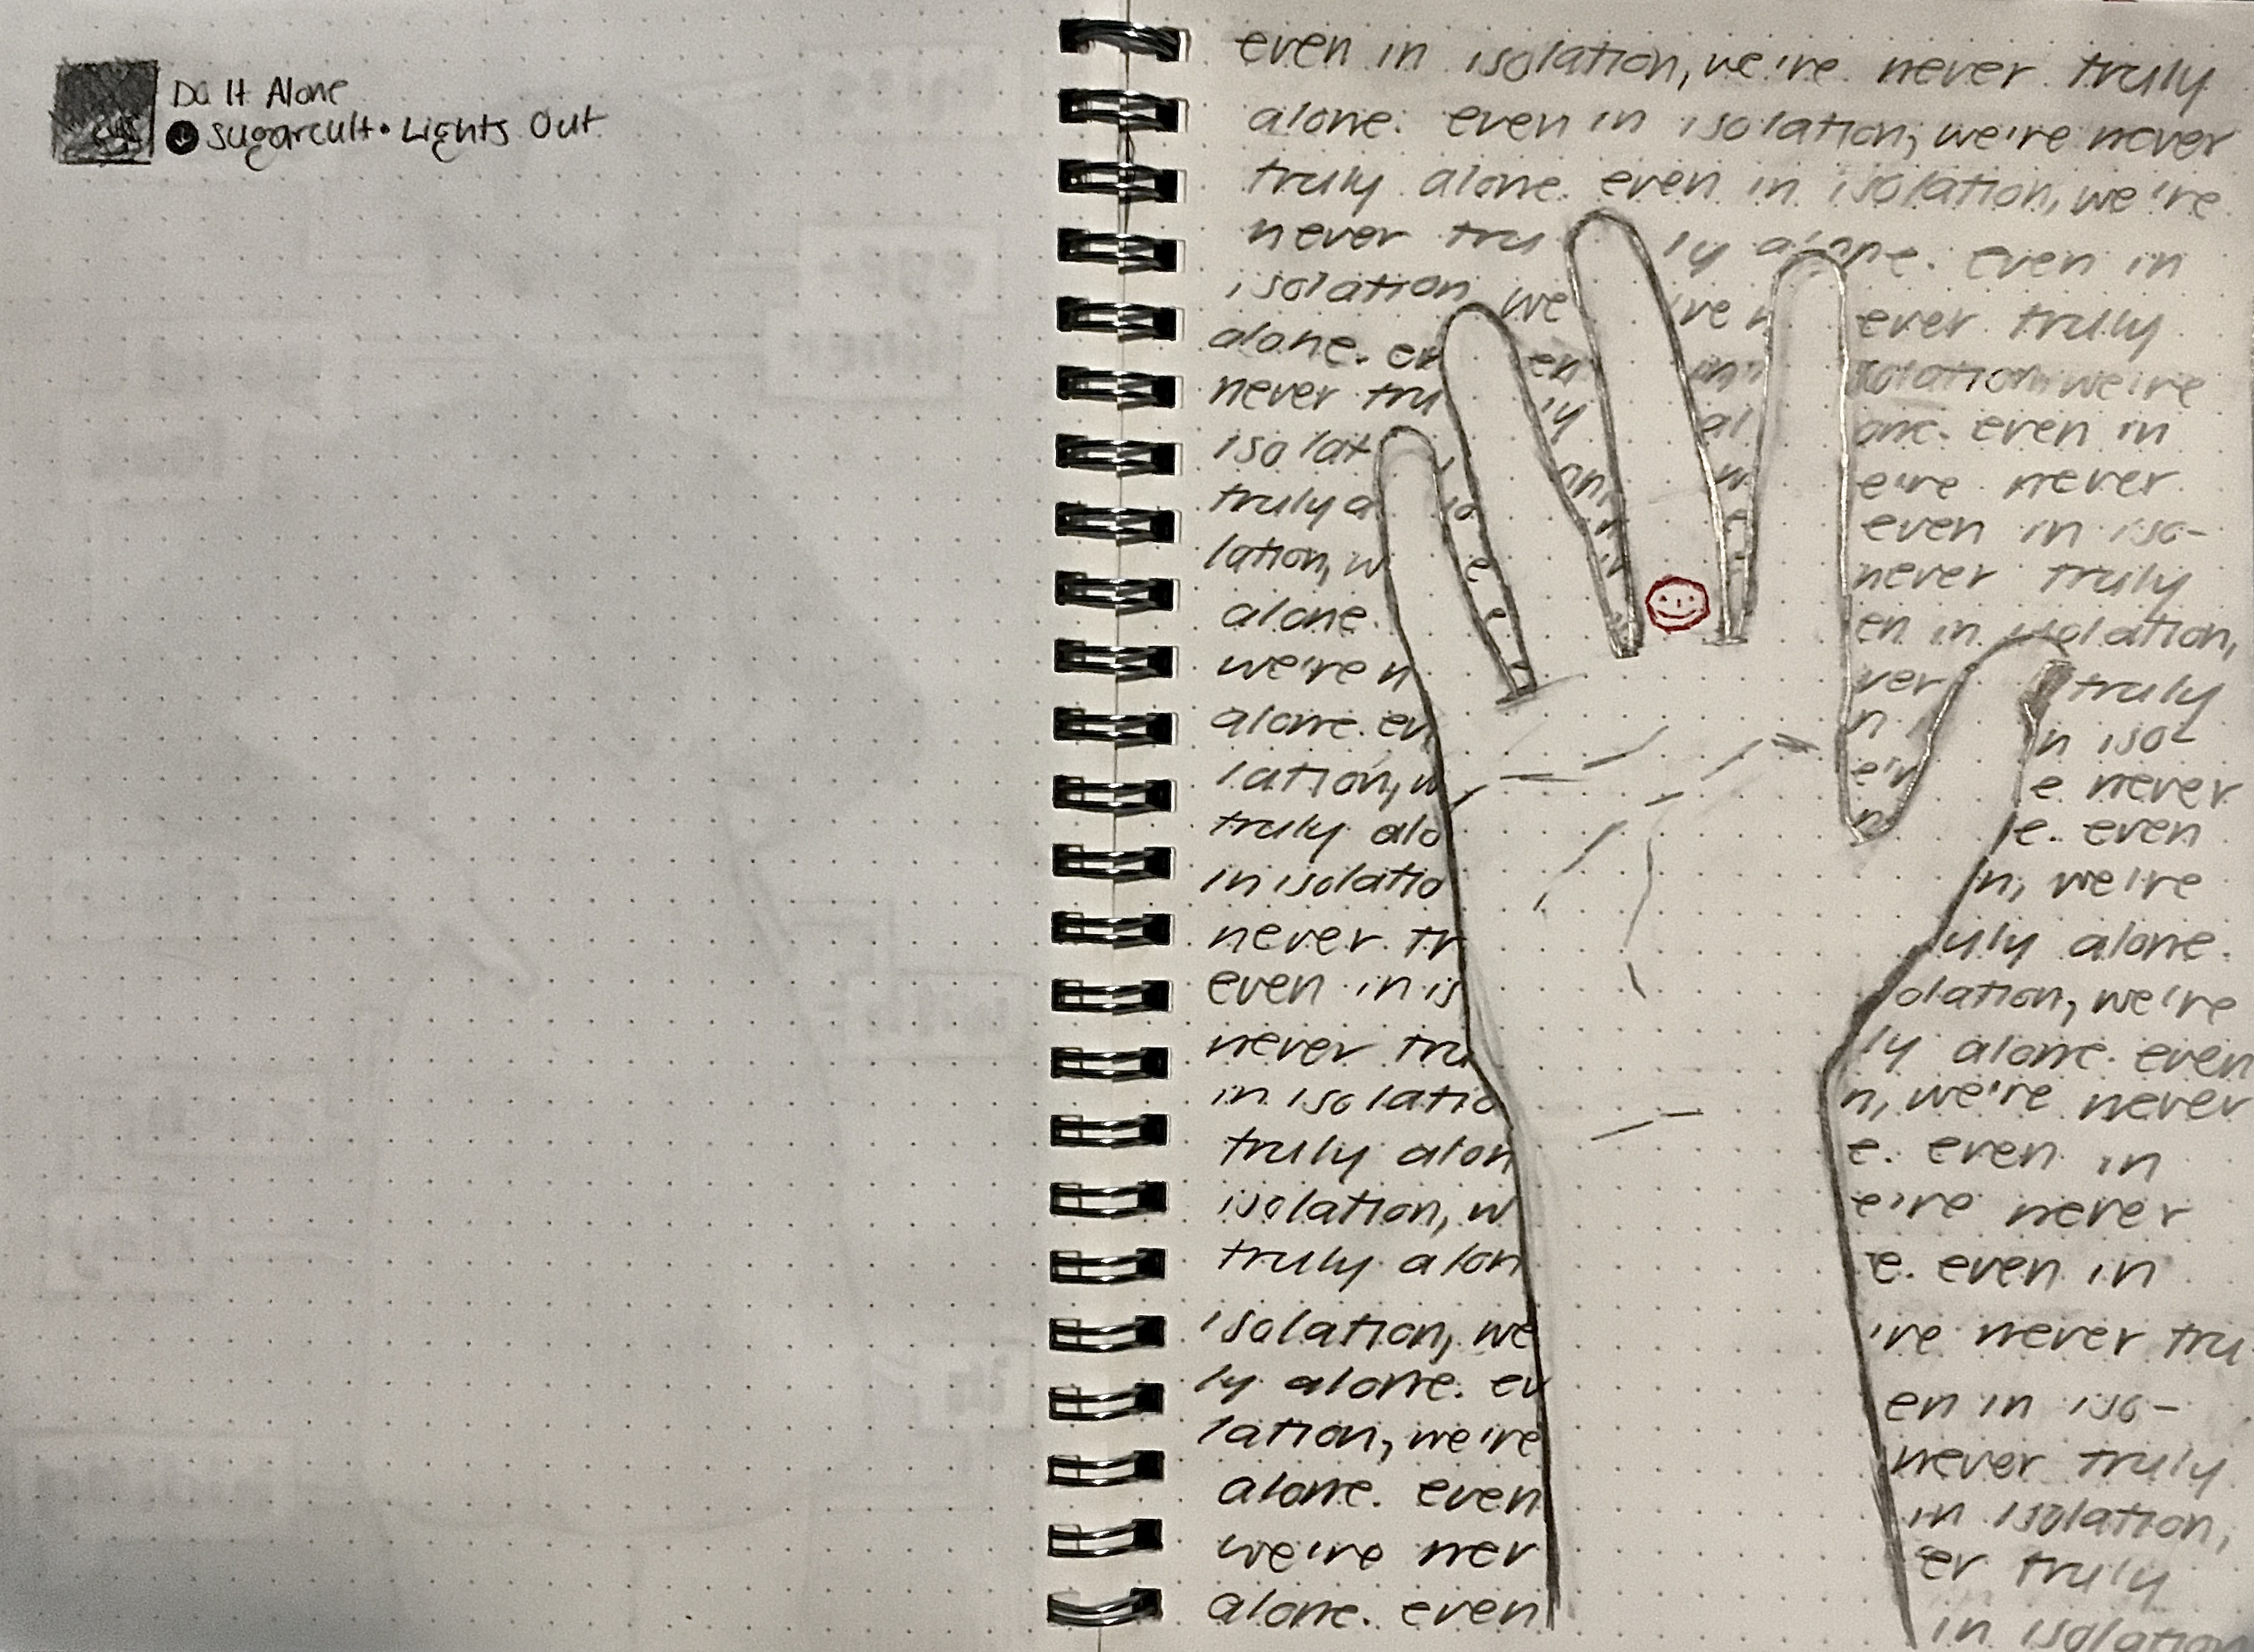 Do It Alone
sugarcult • Lights Out
even in isolation, we're never truly
alone. even in isolation, we're never
truly alone. even in isolation, we're
never tru ly alone. even in
isolation we 're n ever truly
alone. ev en in solation we're
never tru ly al one. even in
isolat w e're never
truly a lo e even in iso-
lation, w e never truly
alone. e en in isolation,
we're n ver truly
alone. ev n n iso-
lation, w e'r e never
truly alo n e. even
in isolatio n, we're
never tr uly alone.
even in is olation, we're
never tru ly alone. even
in isolatio n, we're never
truly alon e. even in
isolation, w e're never
truly alon e. even in
isolation, we 're never tru
ly alone. ev en in iso-
lation, we're never truly
alone. even in isolation,
we're nev er truly
alone. even in isolatio